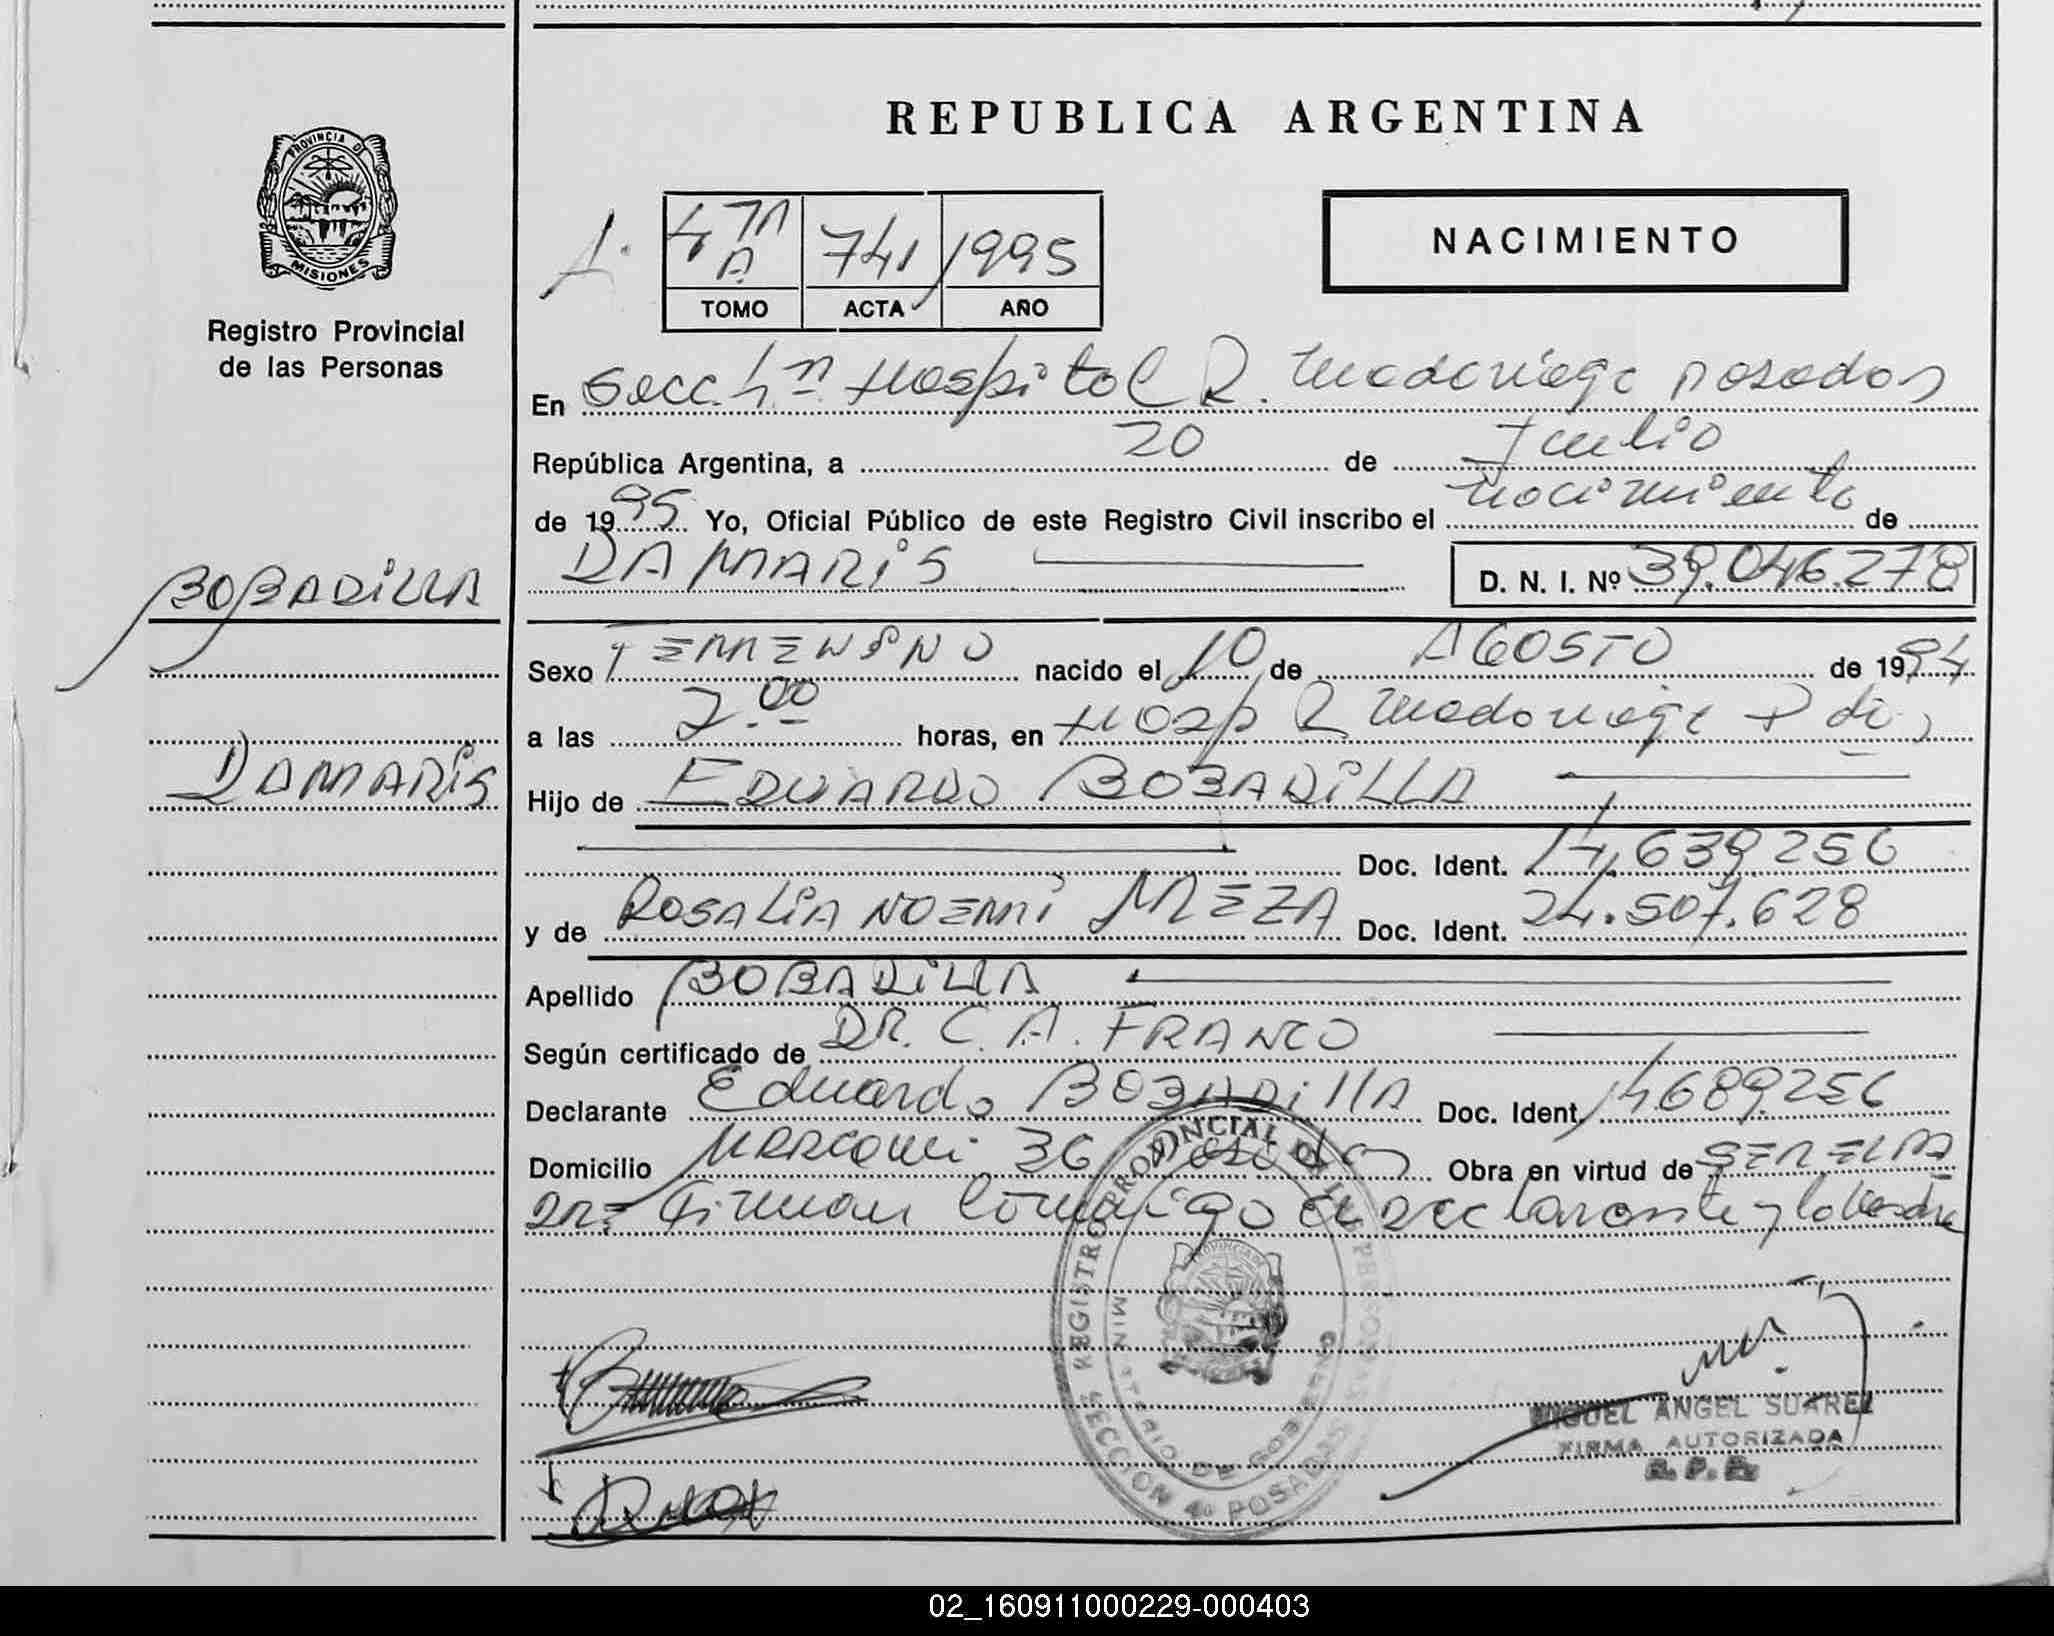 REPUBLICA ARGENTINA
PROVINCIA DE
MISIONES
Registro Provincial
de las Personas
NACIMIENTO
1. 4ta A 741 1995
TOMO ACTA AÑO
En Secc. 4ta Hospital R. Madariaga Posadas
República Argentina, a 20 de Julio
de 1995 Yo, Oficial Público de este Registro Civil inscribo el nacimiento de
DAMARIS D. N. I. Nº 39.046.278
BOBADILLA
Sexo FEMENINO nacido el 10 de AGOSTO de 1994
a las 2.00 horas, en Hosp R Madariaga Pdas
DAMARIS
Hijo de EDUARDO BOBADILLA
Doc. Ident. 14.639256
y de ROSALIA NOEMI MEZA Doc. Ident. 24.507.628
Apellido BOBADILLA
Según certificado de DR. C. A. FRANCO
Declarante Eduardo BOBADILLA Doc. Ident. 14689256
Domicilio Marconi 36 Posadas Obra en virtud de SER EL PA
DRE firman conmigo el declarante y la madre
REGISTRO PROVINCIAL DE LAS PERSONAS
MINISTERIO DE GOBIERNO
SECCION 4a POSADAS
MIGUEL ANGEL SUAREZ
FIRMA AUTORIZADA
R. P. P.
02_160911000229-000403